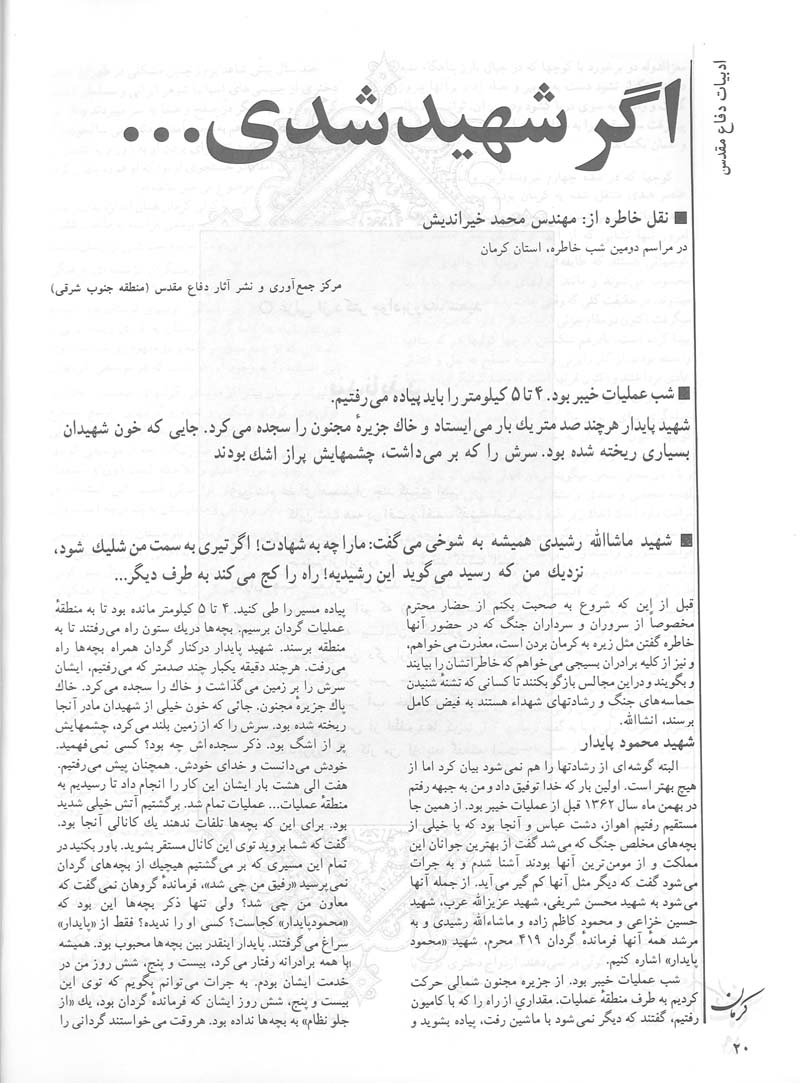 ادبیات دفاع مقدس
اگر شهید شدی...
■ نقل خاطره از: مهندس محمد خیراندیش
در مراسم دومین شب خاطره، استان کرمان
مرکز جمع‌آوری و نشر آثار دفاع مقدس (منطقه جنوب شرقی)
■ شب عملیات خیبر بود. ۴ تا ۵ کیلومتر را باید پیاده می‌رفتیم.
شهید پایدار هرچند صد متر یك بار می‌ایستاد و خاك جزیرهٔ مجنون را سجده می‌کرد. جایی که خون شهیدان
بسیاری ریخته شده بود. سرش را که بر می‌داشت، چشمهایش پراز اشك بودند
■ شهید ماشاالله رشیدی همیشه به شوخی می‌گفت: ما را چه به شهادت! اگر تیری به سمت من شلیك شود،
نزدیك من که رسید می‌گوید این رشیدیه! راه را کج می‌کند به طرف دیگر...
قبل از این که شروع به صحبت بکنم از حضار محترم
مخصوصاً از سروران و سرداران جنگ که در حضور آنها
خاطره گفتن مثل زیره به کرمان بردن است، معذرت می‌خواهم،
و نیز از کلیه برادران بسیجی می‌خواهم که خاطراتشان را بیایند
و بگویند و دراین مجالس بازگو بکنند تا کسانی که تشنهٔ شنیدن
حماسه‌های جنگ و رشادتهای شهداء هستند به فیض کامل
برسند، انشاالله.
شهید محمود پایدار
البته گوشه‌ای از رشادتها را هم نمی‌شود بیان کرد اما از
هیچ بهتر است. اولین بار که خدا توفیق داد و من به جبهه رفتم
در بهمن ماه سال ۱۳۶۲ قبل از عملیات خیبر بود. از همین جا
مستقیم رفتیم اهواز، دشت عباس و آنجا بود که با خیلی از
بچه‌های مخلص جنگ که می‌شد گفت از بهترین جوانان این
مملکت و از مومن‌ترین آنها بودند آشنا شدم و به جرات
می‌شود گفت که دیگر مثل آنها کم گیر می‌آید. از جمله آنها
می‌شود به شهید محسن شریفی، شهید عزیزالله عرب، شهید
حسین خزاعی و محمود کاظم زاده و ماشاءالله رشیدی و به
مرشد همهٔ آنها فرماندهٔ گردان ۴۱۹ محرم، شهید «محمود
پایدار» اشاره کنیم.
شب عملیات خیبر بود. از جزیره مجنون شمالی حرکت
کردیم به طرف منطقهٔ عملیات. مقداری از راه را که با کامیون
رفتیم، گفتند که دیگر نمی‌شود با ماشین رفت، پیاده بشوید و
پیاده مسیر را طی کنید. ۴ تا ۵ کیلومتر مانده بود تا به منطقهٔ
عملیات گردان برسیم. بچه‌ها دریك ستون راه می‌رفتند تا به
منطقه برسند. شهید پایدار درکنار گردان همراه بچه‌ها راه
می‌رفت. هرچند دقیقه یکبار چند صدمتر که می‌رفتیم، ایشان
سرش را بر زمین می‌گذاشت و خاك را سجده می‌کرد. خاك
پاك جزیرهٔ مجنون. جائی که خون خیلی از شهیدان مادر آنجا
ریخته شده بود. سرش را که از زمین بلند می‌کرد، چشمهایش
پر از اشگ بود. ذکر سجده‌اش چه بود؟ کسی نمی‌فهمید.
خودش می‌دانست و خدای خودش. همچنان پیش می‌رفتیم.
هفت الی هشت بار ایشان این کار را انجام داد تا رسیدیم به
منطقهٔ عملیات... عملیات تمام شد. برگشتیم آتش خیلی شدید
بود. برای این که بچه‌ها تلفات ندهند یك کانالی آنجا بود.
گفت که شما بروید توی این کانال مستقر بشوید. باور بکنید در
تمام این مسیری که بر می‌گشتیم هیچیك از بچه‌های گردان
نمی‌پرسید «رفیق من چی شد»، فرماندهٔ گروهان نمی‌گفت که
معاون من چی شد؟ ولی تنها ذکر بچه‌ها این بود که
«محمودپایدار» کجاست؟ کسی او را ندیده؟ فقط از «پایدار»
سراغ می‌گرفتند. پایدار اینقدر بین بچه‌ها محبوب بود. همیشه
با همه برادرانه رفتار می‌کرد، بیست و پنج، شش روز من در
خدمت ایشان بودم. به جرات می‌توانم بگویم که توی این
بیست و پنج، شش روز ایشان که فرماندهٔ گردان بود، یك «از
جلو نظام» به بچه‌ها نداده بود. هروقت می‌خواستند گردانی را
کرمان
۲۰